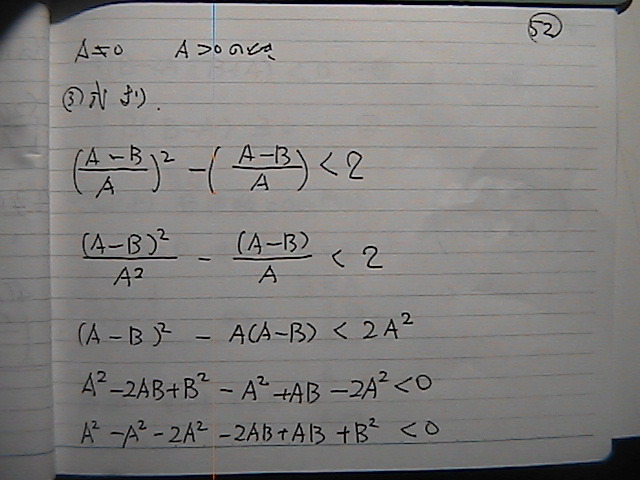 52
A≠0 A>0のとき
③式より.
((A-B)/A)² - ((A-B)/A) < 2
(A-B)²/A² - (A-B)/A < 2
(A-B)² - A(A-B) < 2A²
A²-2AB+B² - A²+AB-2A²<0
A²-A²-2A²-2AB+AB+B² <0